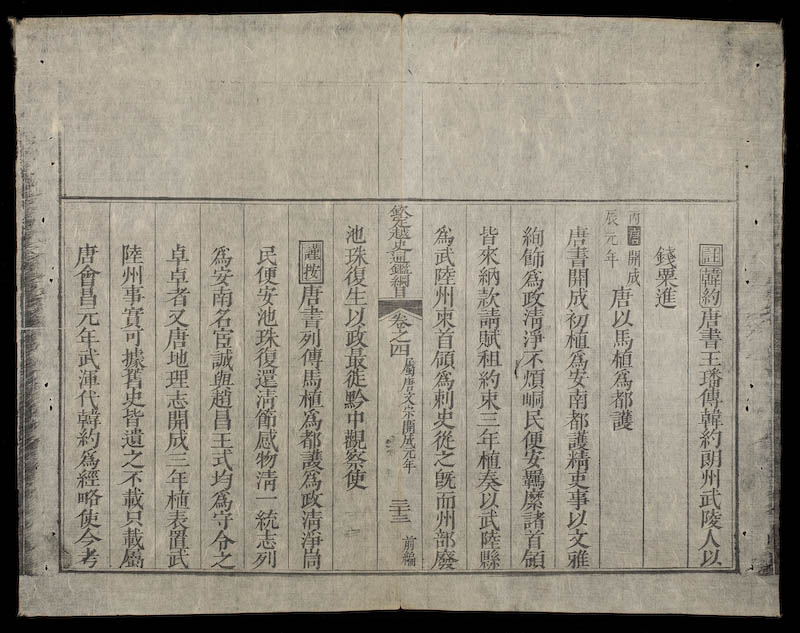 註韓約唐書王璠傳韓約朗州武陵人以
錢粟進
丙辰開成元年唐以馬植爲都護
唐書開成初植爲安南都護精吏事以文雅
絢飾爲政清淨不煩峒民便安羈縻諸首領
皆來納款請賦租約束三年植奏以武陸縣
爲武陸州柬首領爲刺史從之旣而州部廢
欽定越史通鑑綱目 卷之四 屬唐文宗開成元年 前編
池珠復生以政最徙黔中觀察使
謹按唐書列傳馬植爲都護爲政清淨峝
民便安池珠復還清節感物清一統志列
爲安南名臣誠與趙昌王式均爲守令之
卓卓者又唐地理志開成三年植表置武
陸州事實可據舊史皆遺之不載只載屬
唐會昌元年武渾代韓約爲經略使今考